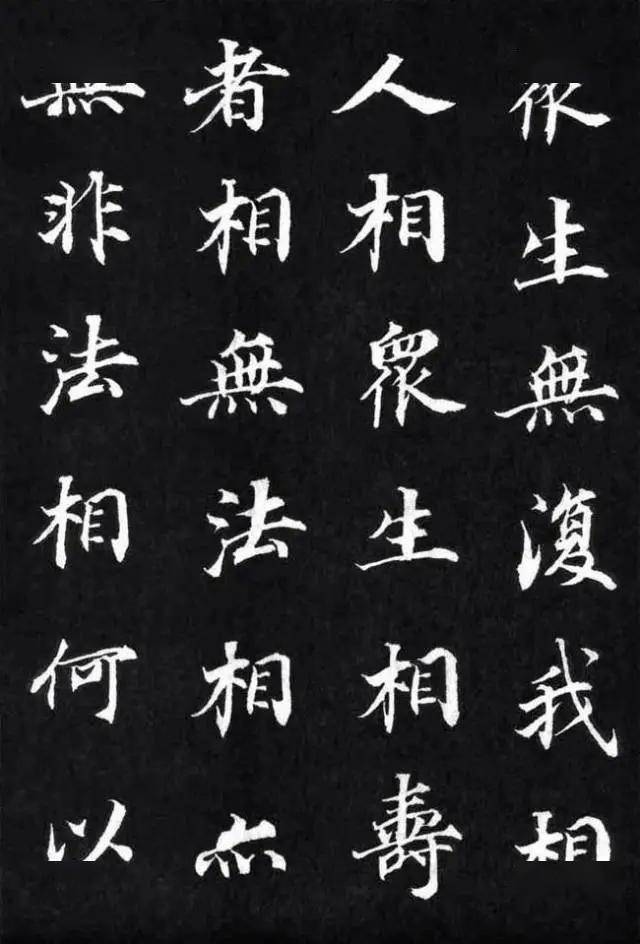 眾生無復我相
人相眾生相壽
者相無法相亦
無非法相何以